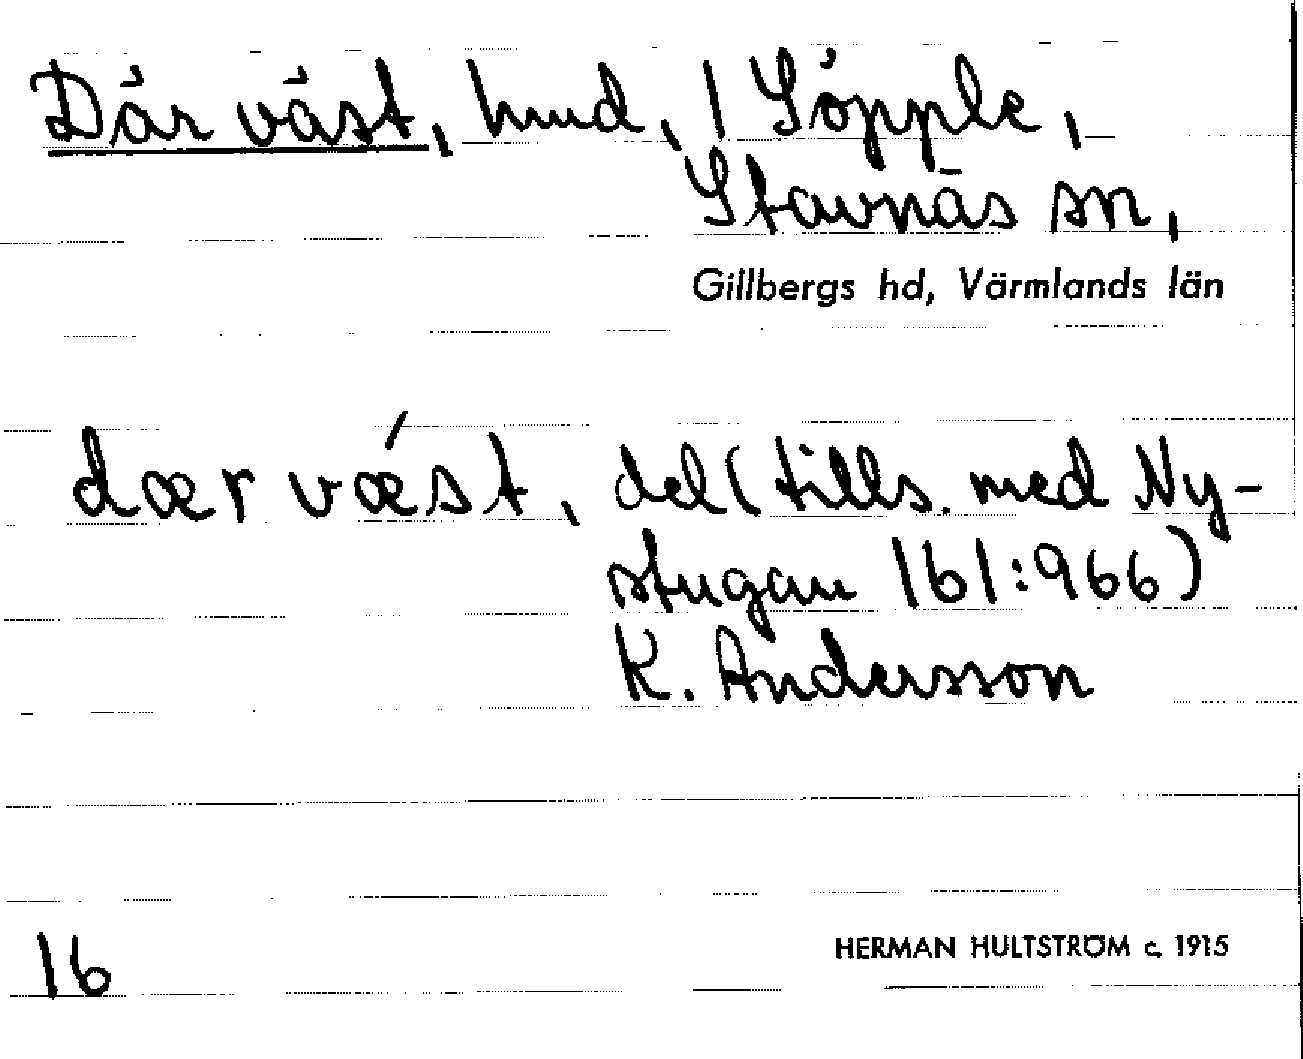 Där väst, hmd, 1 Söpple,
Stavnäs sn,
Gillbergs hd, Värmlands län
dær vǽst, del (tills. med Ny-
stugan 161:966)
K. Andersson
16
HERMAN HULTSTRÖM c. 1915